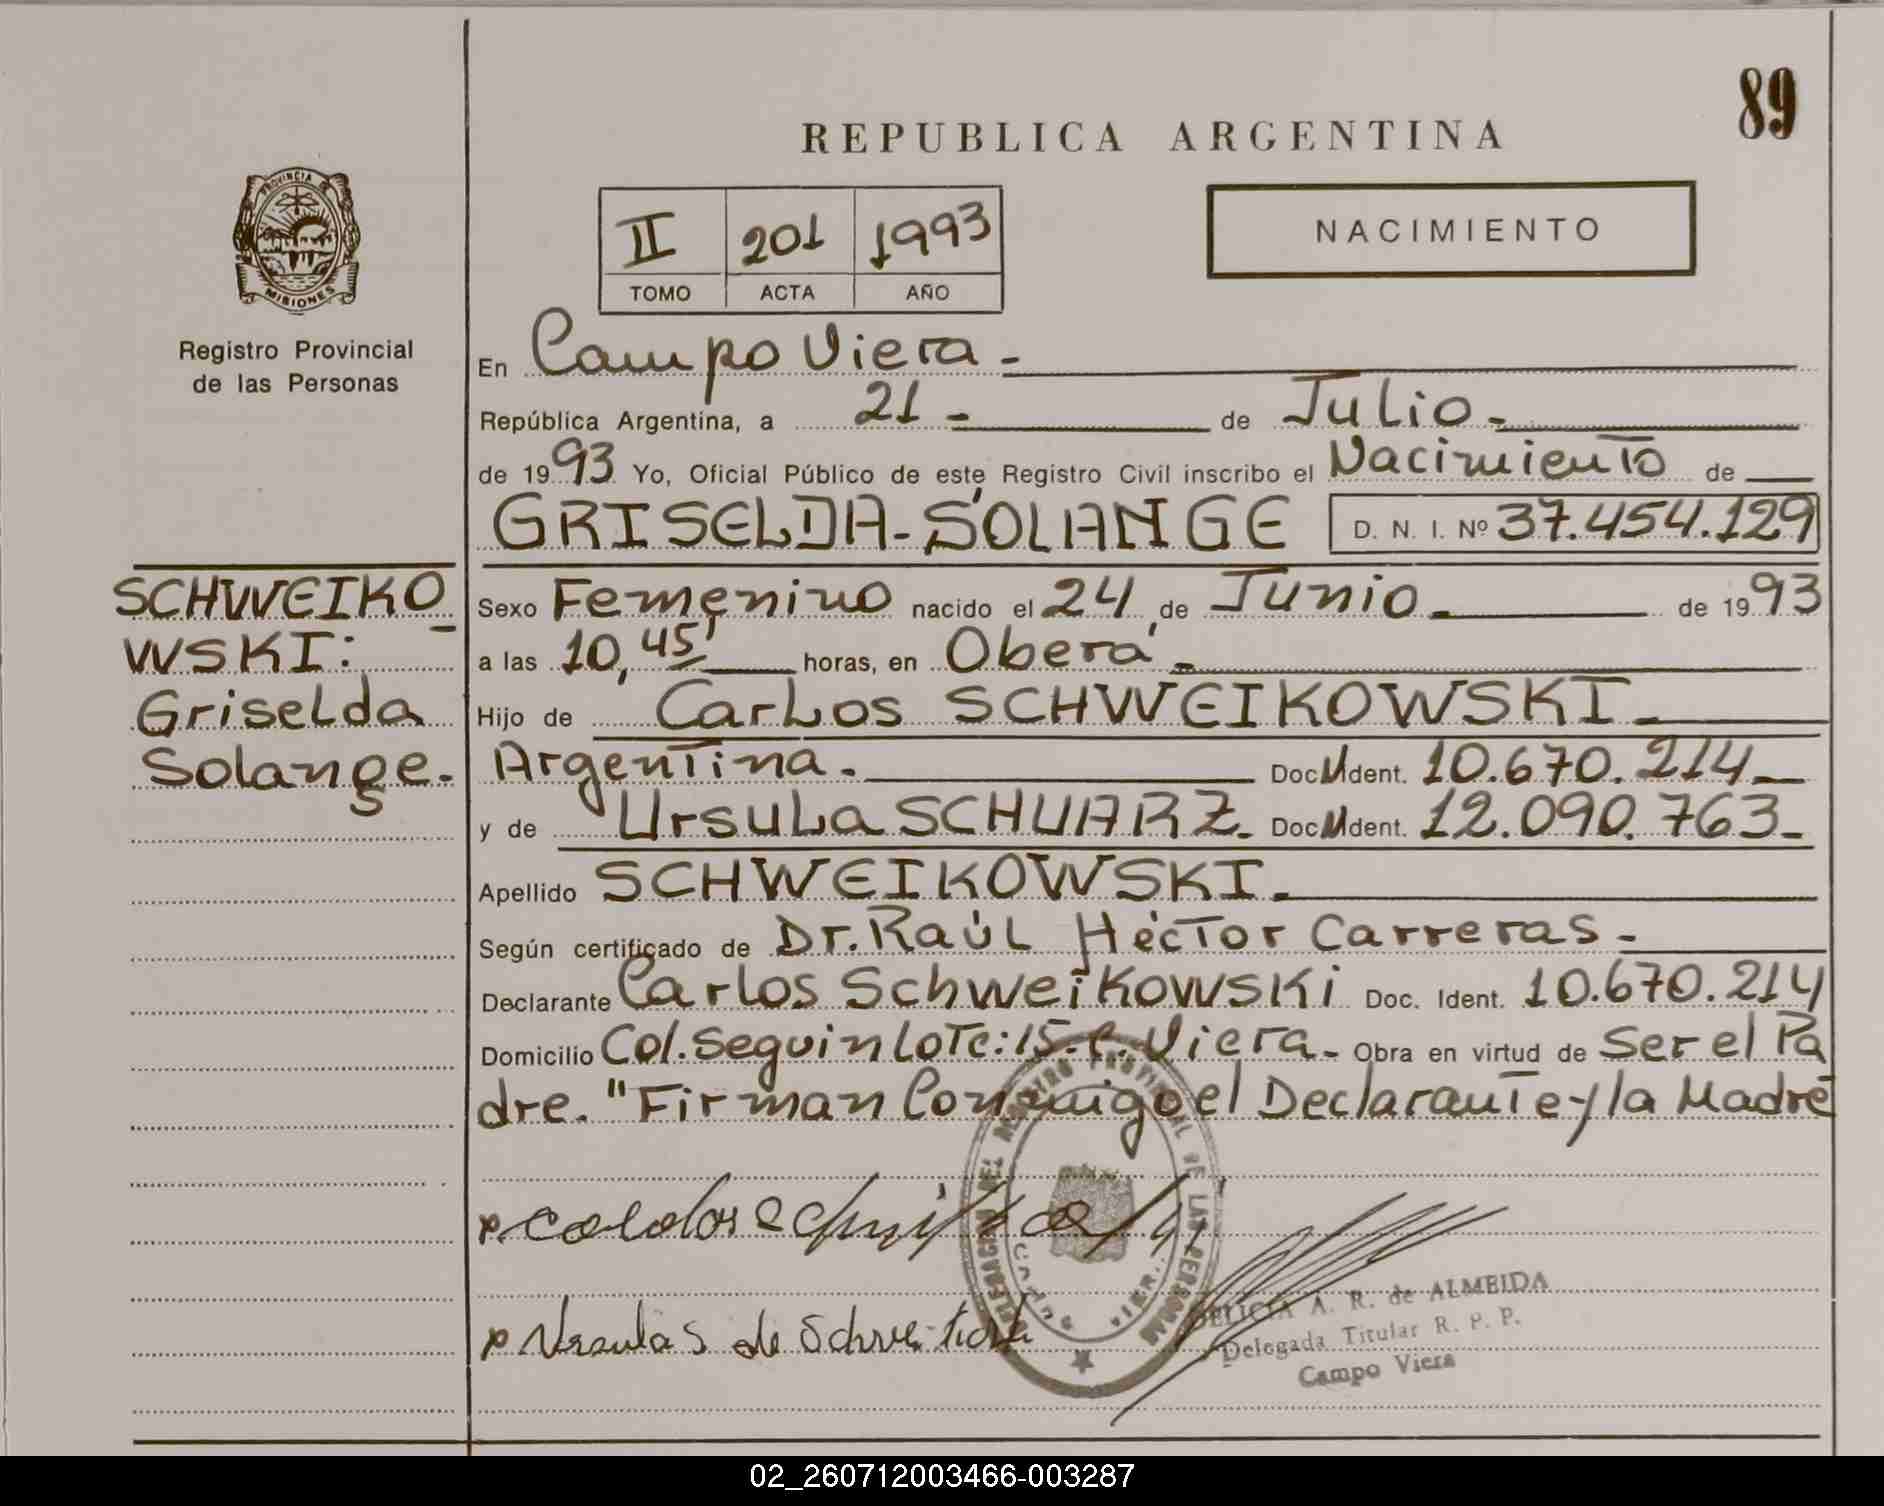 89
REPUBLICA ARGENTINA
PROVINCIA DE
MISIONES
Registro Provincial
de las Personas
II 201 1993
TOMO ACTA AÑO
NACIMIENTO
En Campo Viera -
República Argentina, a 21 - de Julio -
de 1993 Yo, Oficial Público de este Registro Civil inscribo el Nacimiento de
GRISELDA-SOLANGE D. N. I. Nº 37.454.129
SCHWEIKO
WSKI:
Griselda
Solange.
Sexo Femenino nacido el 24 de Junio - de 1993
a las 10,45' horas, en Oberá -
Hijo de Carlos SCHWEIKOWSKI -
Argentina. Doc Ident. 10.670.214
y de Ursula SCHUARZ. Doc Ident. 12.090.763-
Apellido SCHWEIKOWSKI.
Según certificado de Dr. Raúl Héctor Carreras -
Declarante Carlos Schweikowski Doc. Ident. 10.670.214
Domicilio Col. Seguin Lote: 15-C. Viera - Obra en virtud de Ser el Pa
dre. "Firman Conmigo el Declarante y la Madre
DELEGACION DEL REGISTRO PROVINCIAL DE LAS PERSONAS
CAMPO VIERA
DELICIA A. R. de ALMEIDA
Delegada Titular R. P. P.
Campo Viera
02_260712003466-003287